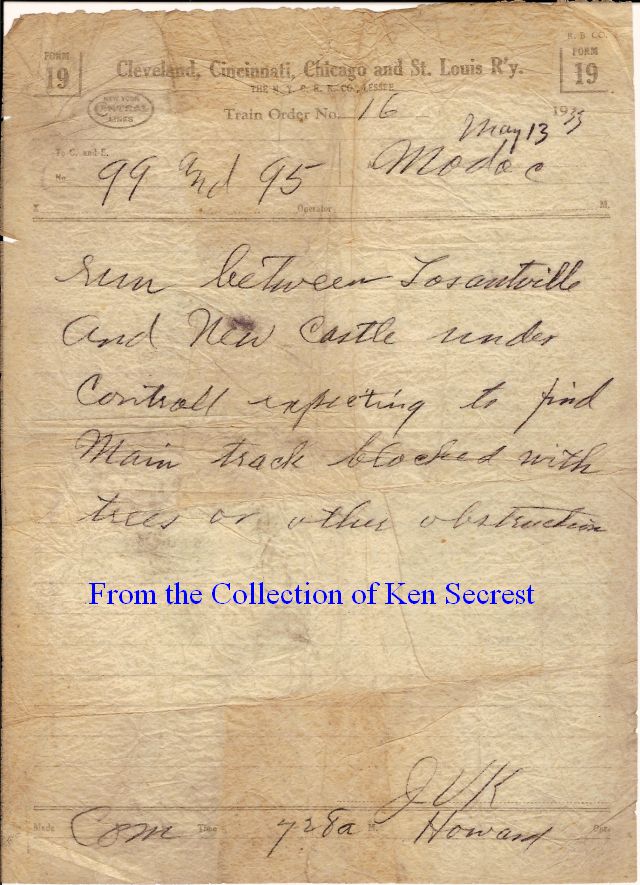 R. B. CO.
FORM 19
FORM 19
Cleveland, Cincinnati, Chicago and St. Louis R'y.
THE N. Y. C. R. R. CO., LESSEE
NEW YORK CENTRAL LINES
Train Order No. 16
May 13 1933
To C. and E.
No. 99 And 95 Modoc
X Operator M.
Run between Losantville
And New Castle under
Controll expecting to find
Main track blocked with
trees or other obstruction
From the Collection of Ken Secrest
JVK
Made Com Time 728a M. Howard Opr.